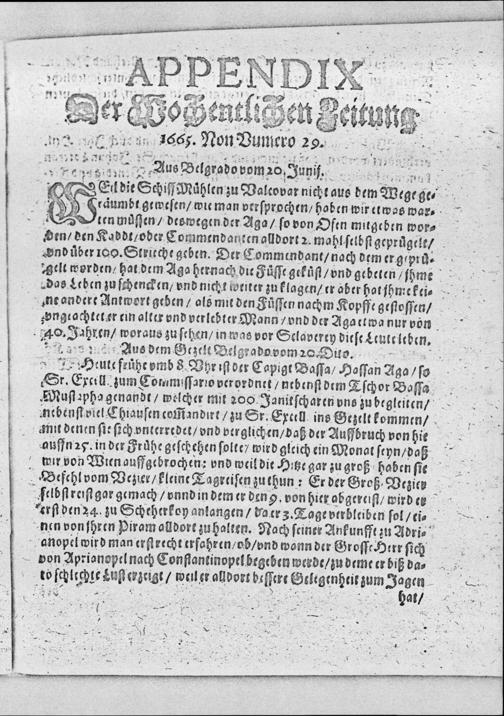 APPENDIX
Der Wochentlichen Zeitung
1665. Non Numero 29.
Aus Belgrado vom 20. Junij.
WEil die Schiff Mühlen zu Valcovar nicht aus dem Wege ge-
räumbt gewesen/ wie man versprochen/ haben wir etwas war-
ten müssen/ deswegen der Aga/ so von Ofen mitgeben wor-
den/ den Kaddt/ oder Commendanten alldort 2. mahl selbst geprügelt/
und über 100. Streiche geben. Der Commendant/ nach dem er geprü-
gelt worden/ hat dem Aga hernach die Füsse geküst/ und gebeten/ jhme
das Leben zu schencken/ und nicht weiter zu klagen/ er aber hat jhme kei-
ne andere Antwort geben/ als mit den Füssen nachm Kopffe gestossen/
ungeachtet er ein alter und verlebter Mann/ und der Aga etwa nur von
40. Jahren/ woraus zu sehen/ in was vor Sclaverey diese Leute leben.
Aus dem Gezelt Belgrado vom 20. Dito.
Heute frühe umb 8. Uhr ist der Capigi Bassa/ Hassan Aga/ so
Sr. Excell. zum Commissario verordnet/ nebenst dem Tschor Bassa
Mustapha genandt/ welcher mit 200. Janitscharen uns zu begleiten/
nebenst viel Chiausen commandirt/ zu Sr. Excell. ins Gezelt kommen/
mit denen sie sich unterredet/ und verglichen/ daß der Auffbruch von hie
auffn 25. in der Frühe geschehen solte/ wird gleich ein Monat seyn/ daß
wir von Wien auffgebrochen: und weil die Hitze gar zu groß/ haben sie
Befehl vom Vezier/ kleine Tagreisen zu thun: Er der Groß-Vezier
selbst reist gar gemach/ unnd in dem er den 9. von hier abgereist/ wird er
erst den 24. zu Scheherkoy anlangen/ da er 3. Tage verbleiben sol/ ei-
nen von jhren Piram alldort zu halten. Nach seiner Ankunfft zu Adri-
anopel wird man erst recht erfahren/ ob/ und wann der Grosse Herr sich
von Aprianopel nach Constantinopel begeben werde/ zu deme er biß da-
to schlechte Lust erzeigt/ weil er alldort bessere Gelegenheit zum Jagen
hat/